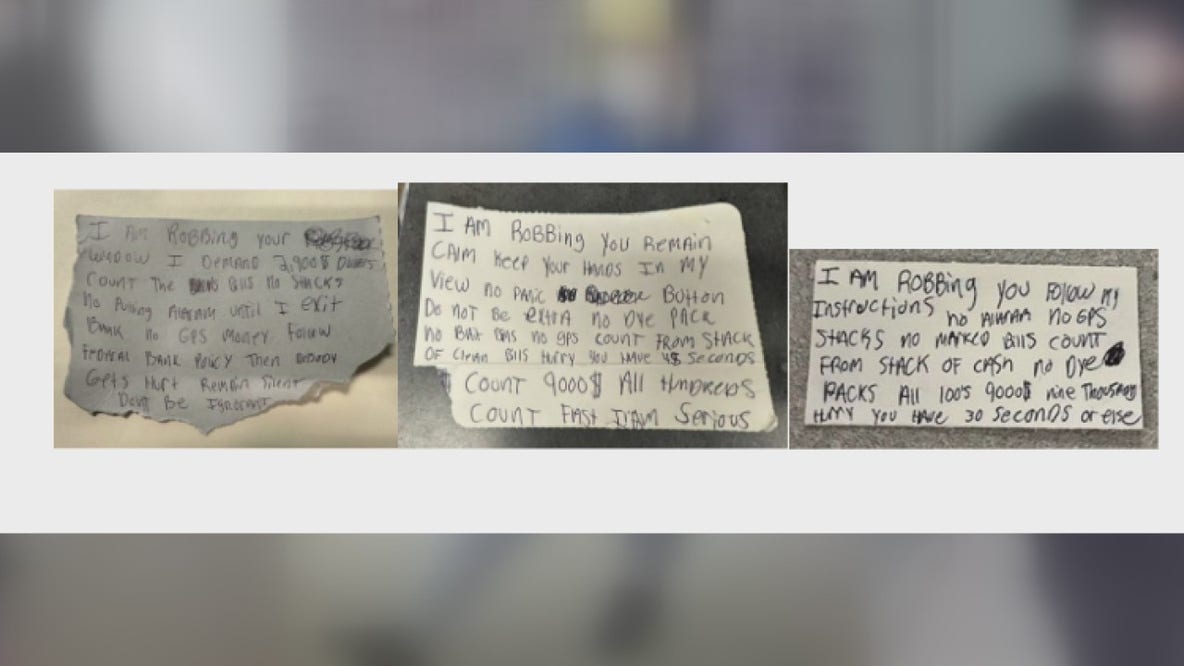 I AM ROBBing your
WINDOW I DEMAND 2,900$ Dollers
COUNT The Bills no STACKS
No Pulling Alaram until I exit
Bank no GPS Money Follow
FEDERAL BANK Policy Then nobody
Gets Hurt Remain Silent
Dont Be Ignorant
I AM ROBBing you REMAIN
CAlM KEEP Your HANDS In My
View no PANIC BUTTON
Do noT Be extra no Dye PACK
no BAIT Bills no gps COUNT From STACK
OF Clean Bills Hurry You HAVE 45 Seconds
COUNT 9000$ All HUNDREDS
COUNT FAST I'AM Serious
I AM ROBBing you Follow My
Instructions no AlARAM no GPS
STACKS no MARKED Bills COUNT
FROM STACK OF CASH no Dye
PACKS All 100's 9000$ nine Thousand
Hurry you HAVE 30 Seconds or else